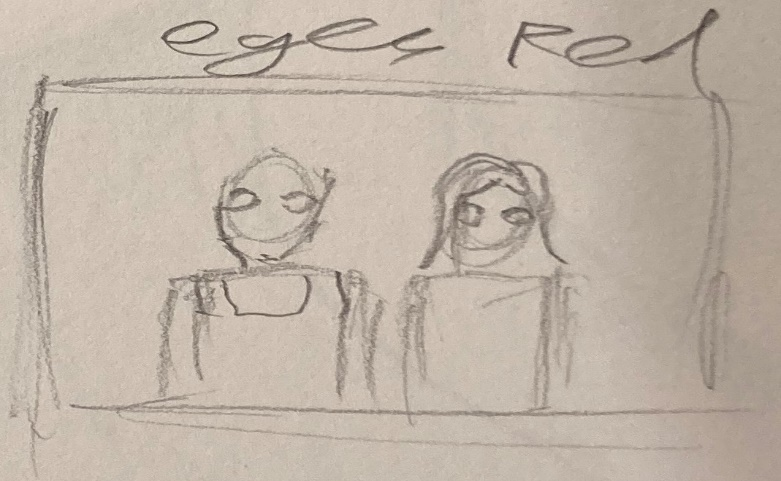 eyes Red